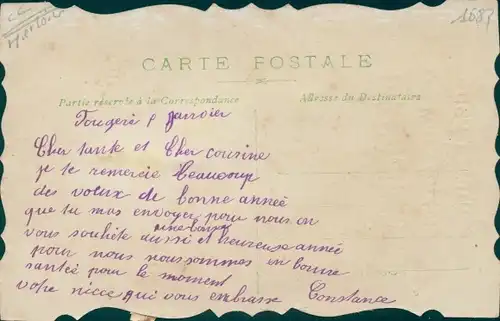 1087
CARTE POSTALE
Partie réservée à la Correspondance
Adresse du Destinataire
Fougere janvier
Cher tante et Cher cousine
je te remercie Beaucoup
des voeux de bonne année
que tu mas envoyer pour nous on
vous souhète aussi une bonne et heureuse année
pour nous noussommes en bonne
santée pour le moment
votre niece qui vous embrasse Constance